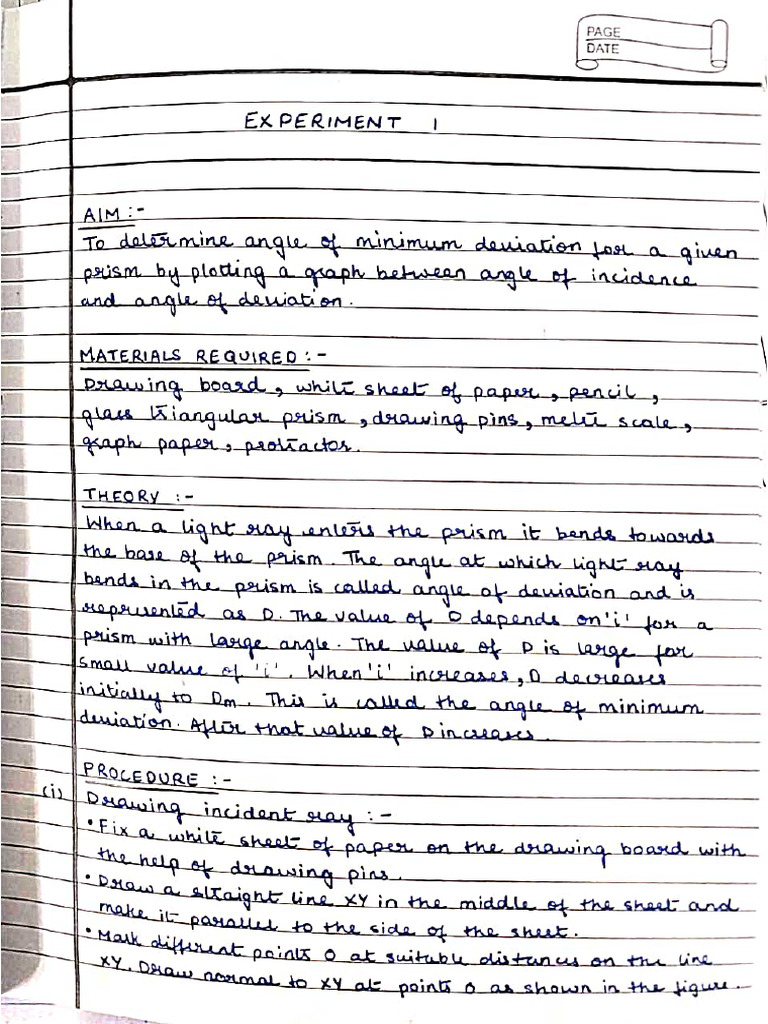 PAGE
DATE
EXPERIMENT 1
AIM :-
To determine angle of minimum deviation for a given
prism by plotting a graph between angle of incidence
and angle of deviation.
MATERIALS REQUIRED :-
Drawing board, white sheet of paper, pencil,
glass triangular prism, drawing pins, metre scale,
graph paper, protractor.
THEORY :-
When a light ray enters the prism it bends towards
the base of the prism. The angle at which light ray
bends in the prism is called angle of deviation and is
represented as D. The value of D depends on 'i' for a
prism with large angle. The value of D is large for
small value of 'i'. When 'i' increases, D decreases
initially to Dm. This is called the angle of minimum
deviation. After that value of D increases.
PROCEDURE :-
(i) Drawing incident ray :-
• Fix a white sheet of paper on the drawing board with
the help of drawing pins.
• Draw a straight line XY in the middle of the sheet and
make it parallel to the side of the sheet.
• Mark different points O at suitable distances on the line
XY. Draw normal to XY at points O as shown in the figure.